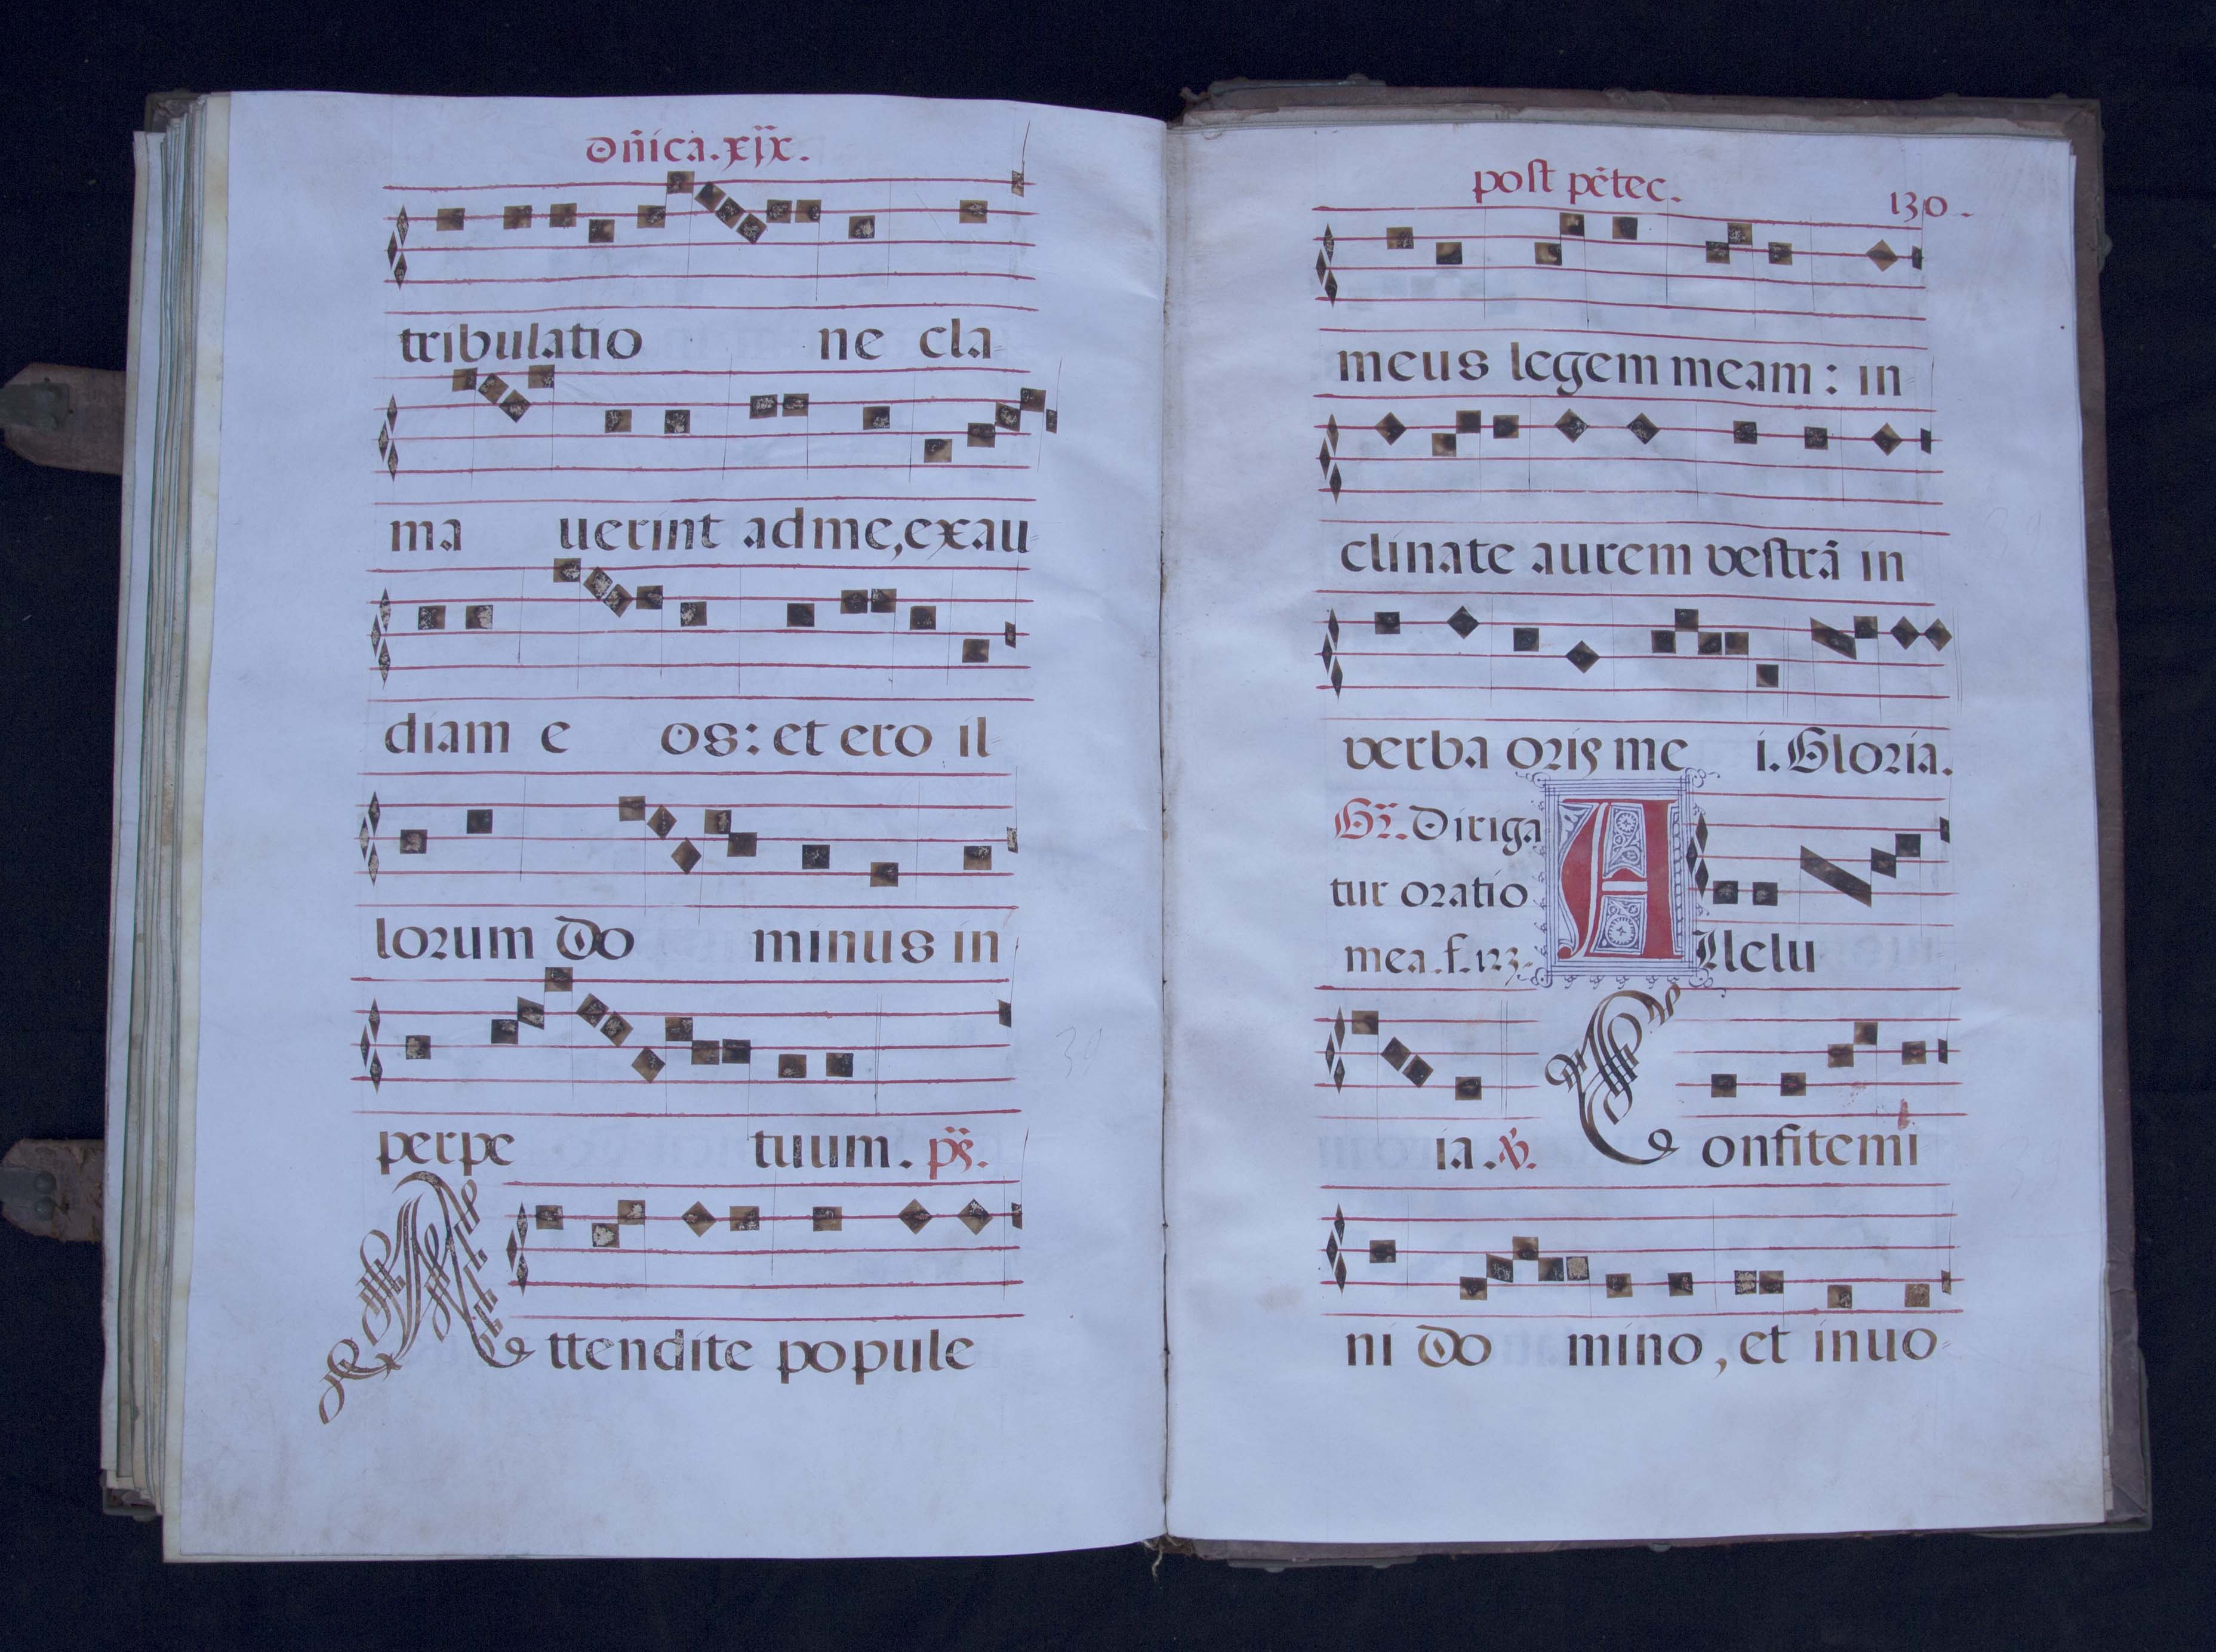 Dñica.xjx.
tribulatio ne cla
ma uerint ad me, exau
diam e os: et ero il
lorum Do minus in
perpe tuum. ps.
Attendite popule
post pētec. 130.
meus legem meam: in
clinate aurem vestrā in
verba oris me i. Gloria.
Gr. Diriga
tur oratio
mea. f. 123.
Allelu
ia. V. Confitemi
ni Do mino, et inuo